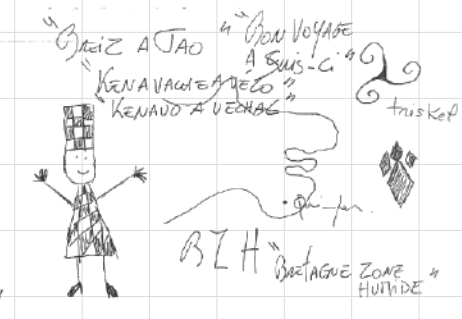 "BREIZ A TAO
"BON VOYAGE
À SUIS-CI"
"KENAVO A
"KENAVO A VECHAL"
triskel
Quimper
BZH
"BRETAGNE ZONE
HUMIDE"